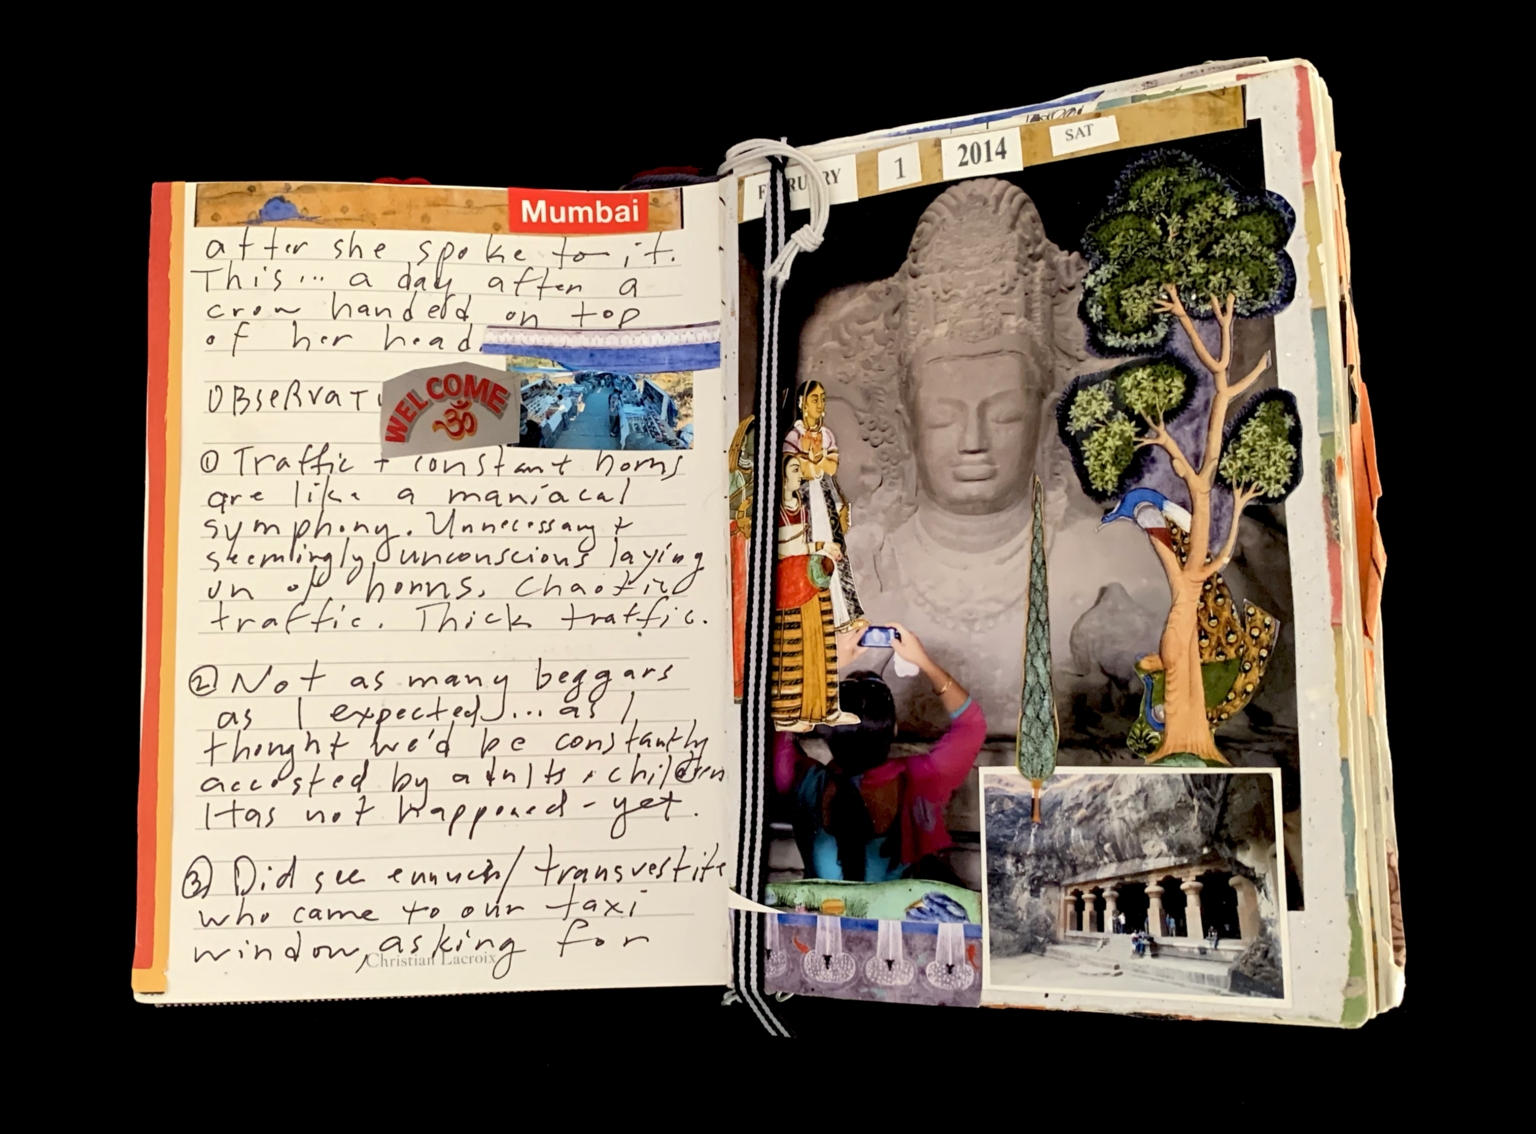 Mumbai
after she spoke to it.
This... a day after a
crow handed on top
of her head.
OBSERVAT
WELCOME
ॐ
① Traffic + constant horns
are like a maniacal
symphony. Unnecessary +
seemlingly unconscious laying
on of horns. Chaotic
traffic. Thick traffic.
② Not as many beggars
as I expected... as I
thought we'd be constantly
accosted by adults + children
Has not happened - yet.
③ Did see eunuch/transvestite
who came to our taxi
window, asking for
Christian Lacroix
FEBRUARY 1 2014 SAT